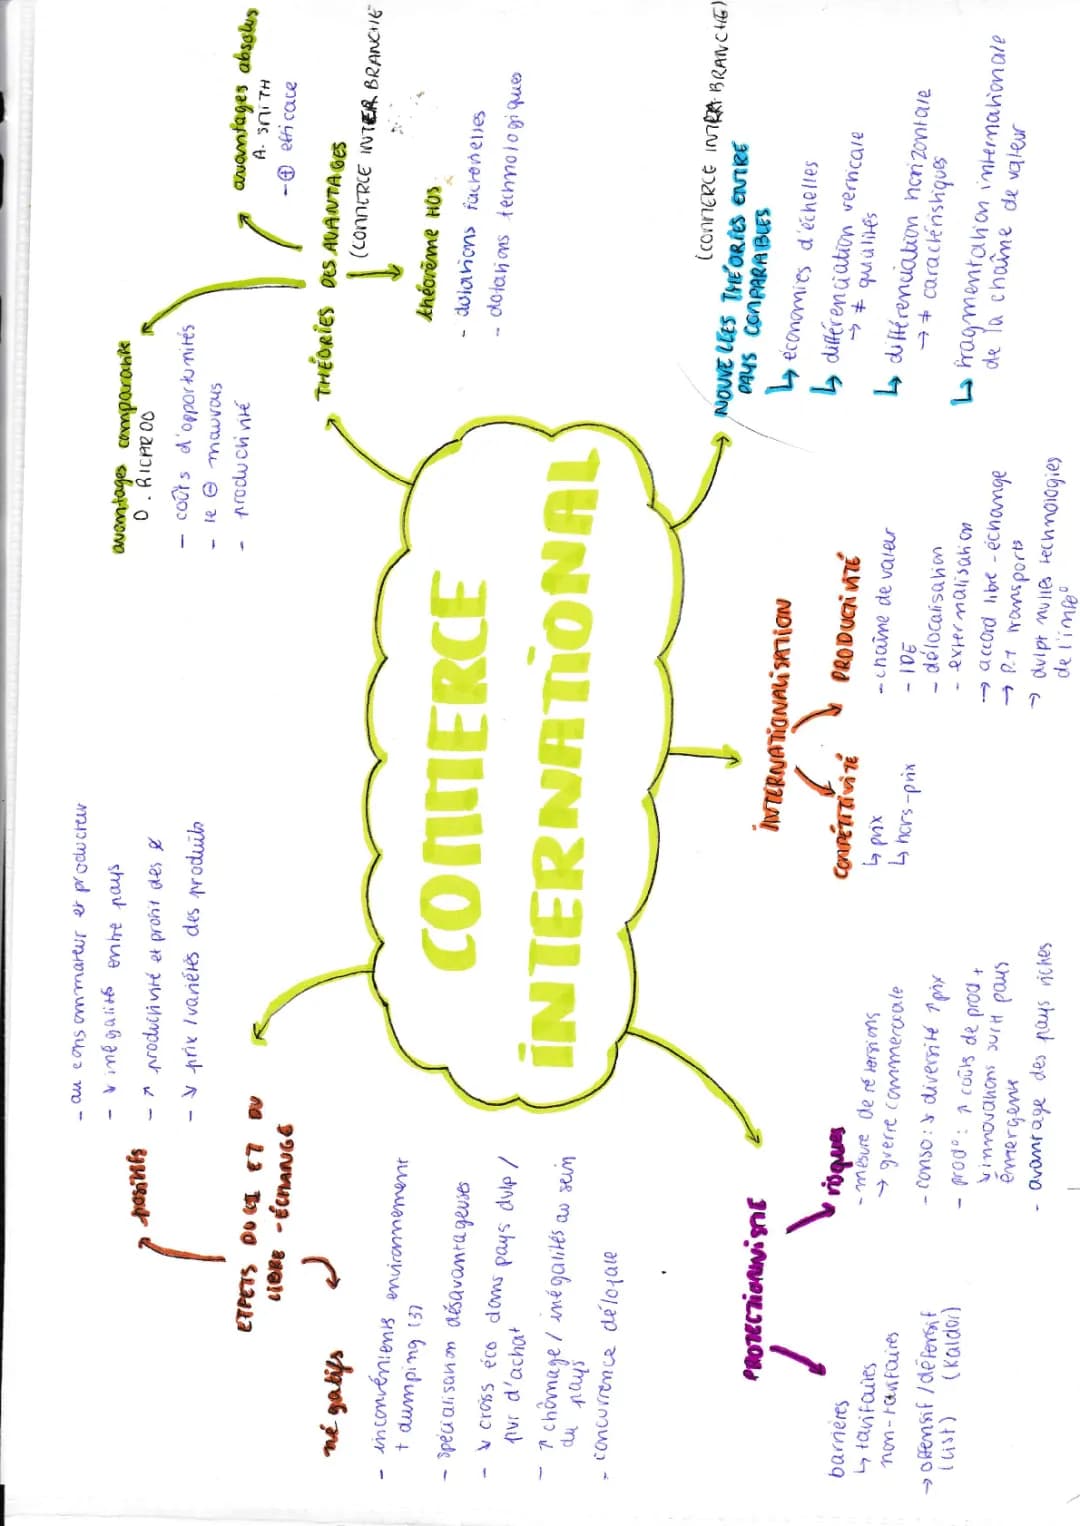 COMMERCE
INTERNATIONAL
THÉORIES DES AVANTAGES
(COMMERCE INTER BRANCHE
avantages absolus
A. SMITH
- ⊕ efficace
avantages comparatifs
D. RICARDO
- coûts d'opportunités
- le ⊖ mauvais
- productivité
théorème HOS
- dotations factorielles
- dotations technologiques
(COMMERCE INTRA-BRANCHE)
NOUVELLES THÉORIES ENTRE
PAYS COMPARABLES
↳ économies d'échelles
↳ différenciation verticale
→ ≠ qualités
↳ différenciation horizontale
→ ≠ caractéristiques
↳ fragmentation internationale
de la chaîne de valeur
INTERNATIONALISATION
COMPÉTITIVITÉ
↳ prix
↳ hors-prix
PRODUCTIVITÉ
- chaîne de valeur
- IDE
- délocalisation
- externalisation
→ accord libre-échange
→ P.T transports
→ dvlpt nvlles technologies
de l'info°
PROTECTIONNISME
barrières
↳ tarifaires
non-tarifaires
→ offensif / défensif
(List) (Kaldor)
risques
- mesure de rétorsions
→ guerre commerciale
- conso : ↘ diversité ↗ prix
- prod° : ↗ coûts de prod +
↘ innovations surtt pays
émergents
- avantage des pays riches
EFFETS DU CE ET DU
LIBRE-ÉCHANGE
positifs
- au consommateur et producteur
- ↘ inégalités entre pays
- ↗ productivité et profit des
- ↘ prix / variétés des produits
négatifs
- inconvénients environnement
+ dumping (3)
- spécialisation désavantageuses
- ↘ croiss éco dans pays dvlp /
pvr d'achat
- ↗ chômage / inégalités au sein
du pays
- concurrence déloyale